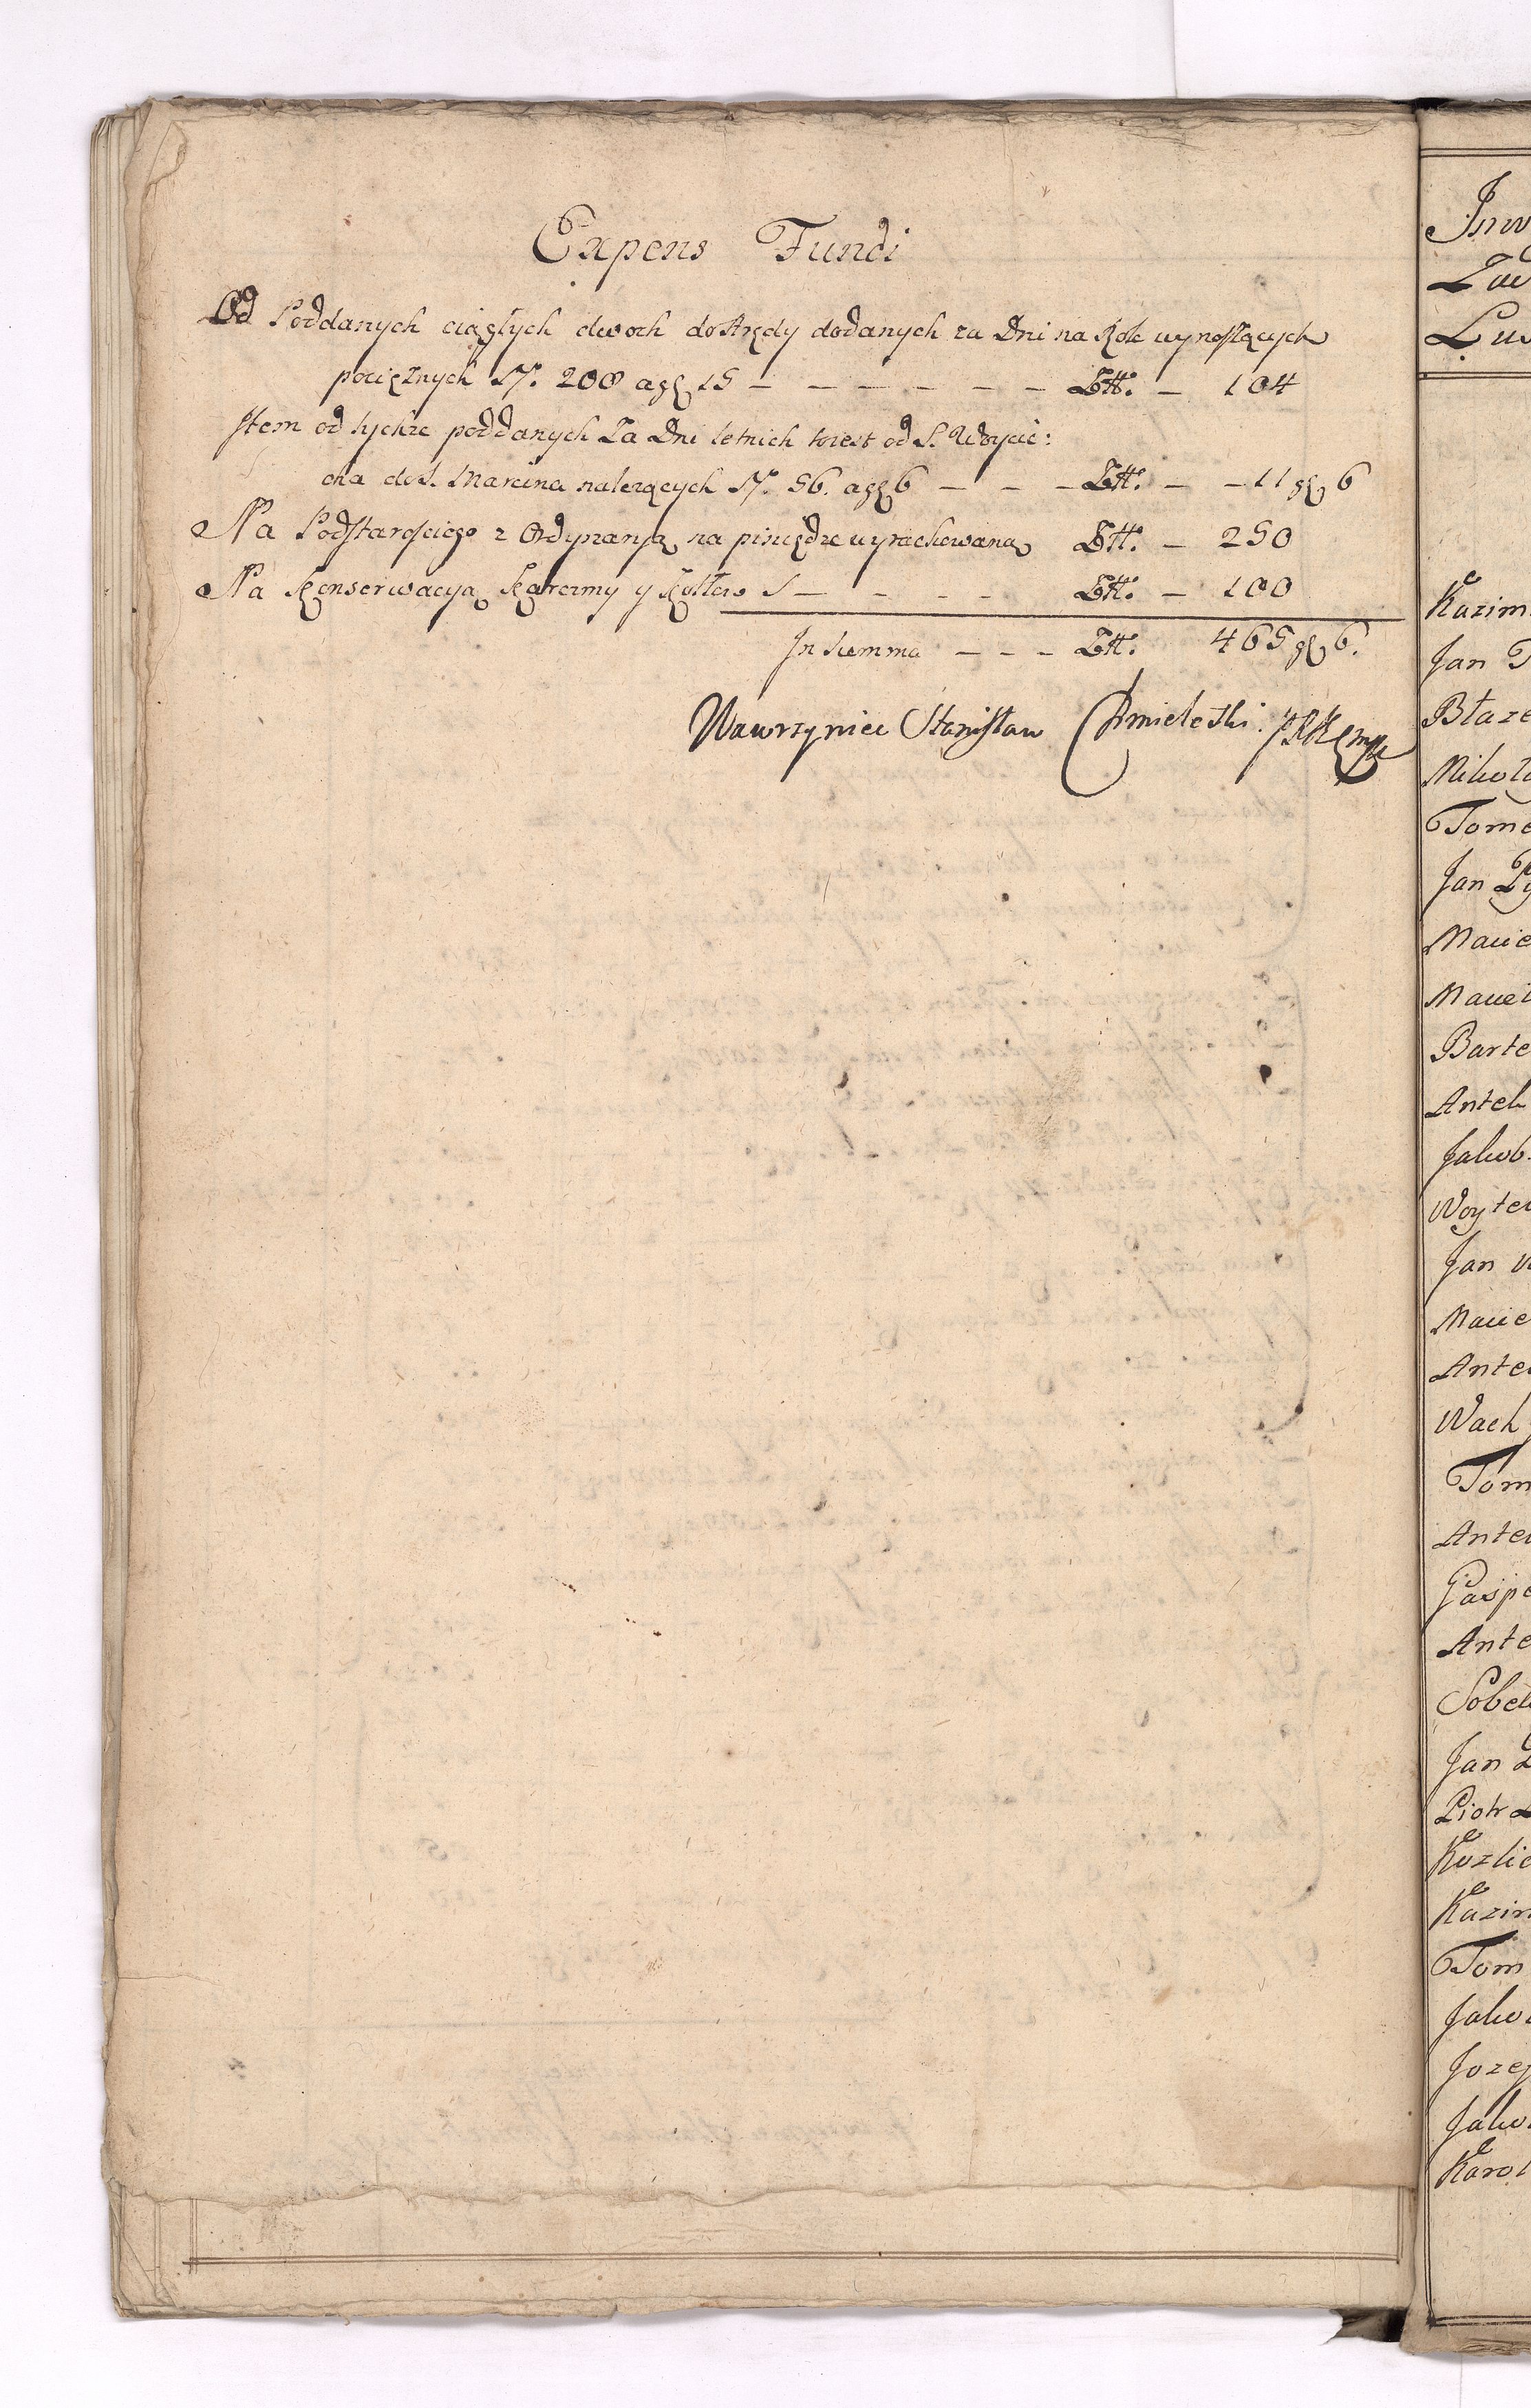 Expens Fundi
Od Poddanych ciągłych dwoch do Arędy dodanych za Dni na Rok wynoszących
pociężnych N. 208 a gſ 15 – – – – – – – Złł. – 104
Item od tychże poddanych Za Dni letnich to iest od S. Woycie:
cha do S. Marcina należących N. 56. a gſ 6 – – – Złł. – – 11 gſ 6
Na Podstarosciego z Ordynaryą na pieniądze wyrachowaną Złł. – 250
Na Konserwacyą Karczmy y Kotłow – – – – Złł. – 100
In Summa – – – Złł. 465 gſ 6.
Wawrzyniec Stanisław Chmieleski
Inw
Kazim
Jan
Błaze
Mikoła
Tome
Jan
Macie
Barte
Antek
Jakob
Woytek
Jan
Macie
Ante
Wach
Tom
Ante
Gaspe
Ante
Sobek
Jan
Piotr
Kozlic
Kazim
Tom
Jako
Jozef
Jako
Karol